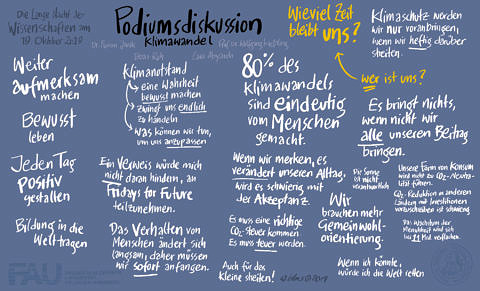 Die Lange Nacht der
Wissenschaften am
19. Oktober 2019
Podiumsdiskussion
Klimawandel
Wieviel Zeit
bleibt uns?
wer ist uns?
Klimaschutz werden
wir nur voranbringen,
wenn wir heftig darüber
streiten.
Weiter
aufmerksam
machen
Bewusst
leben
Jeden Tag
positiv
gestalten
Bildung in die
Welt tragen
Klimanotstand
eine Wahrheit
bewusst machen
zwingt uns endlich
zu handeln
Was können wir tun,
um uns anzupassen
Ein Verweis würde mich
nicht daran hindern, an
Fridays for Future
teilzunehmen.
Das Verhalten von
Menschen ändert sich
langsam, daher müssen
wir sofort anfangen.
80% des
Klimawandels
sind eindeutig
vom Menschen
gemacht.
Wenn wir merken, es
verändert unseren Alltag,
wird es schwierig mit
der Akzeptanz.
Es muss eine richtige
CO2-Steuer kommen.
Es muss teuer werden.
Auch für das
Kleine streiten!
Es bringt nichts,
wenn nicht wir
alle unseren Beitrag
bringen.
Die Sonne
ist nicht
verantwortlich
Wir
brauchen mehr
Gemeinwohl-
orientierung.
Unsere Form von Konsum
wird nicht zu CO2-Neutra-
lität führen.
CO2-Reduktion in anderen
Ländern mit Investitionen
voranschreiben ist schwierig.
Das Wachstum der
Menschheit wird sich
bei 11 Mrd einpendeln.
Wenn ich könnte,
würde ich die Welt retten
FAU